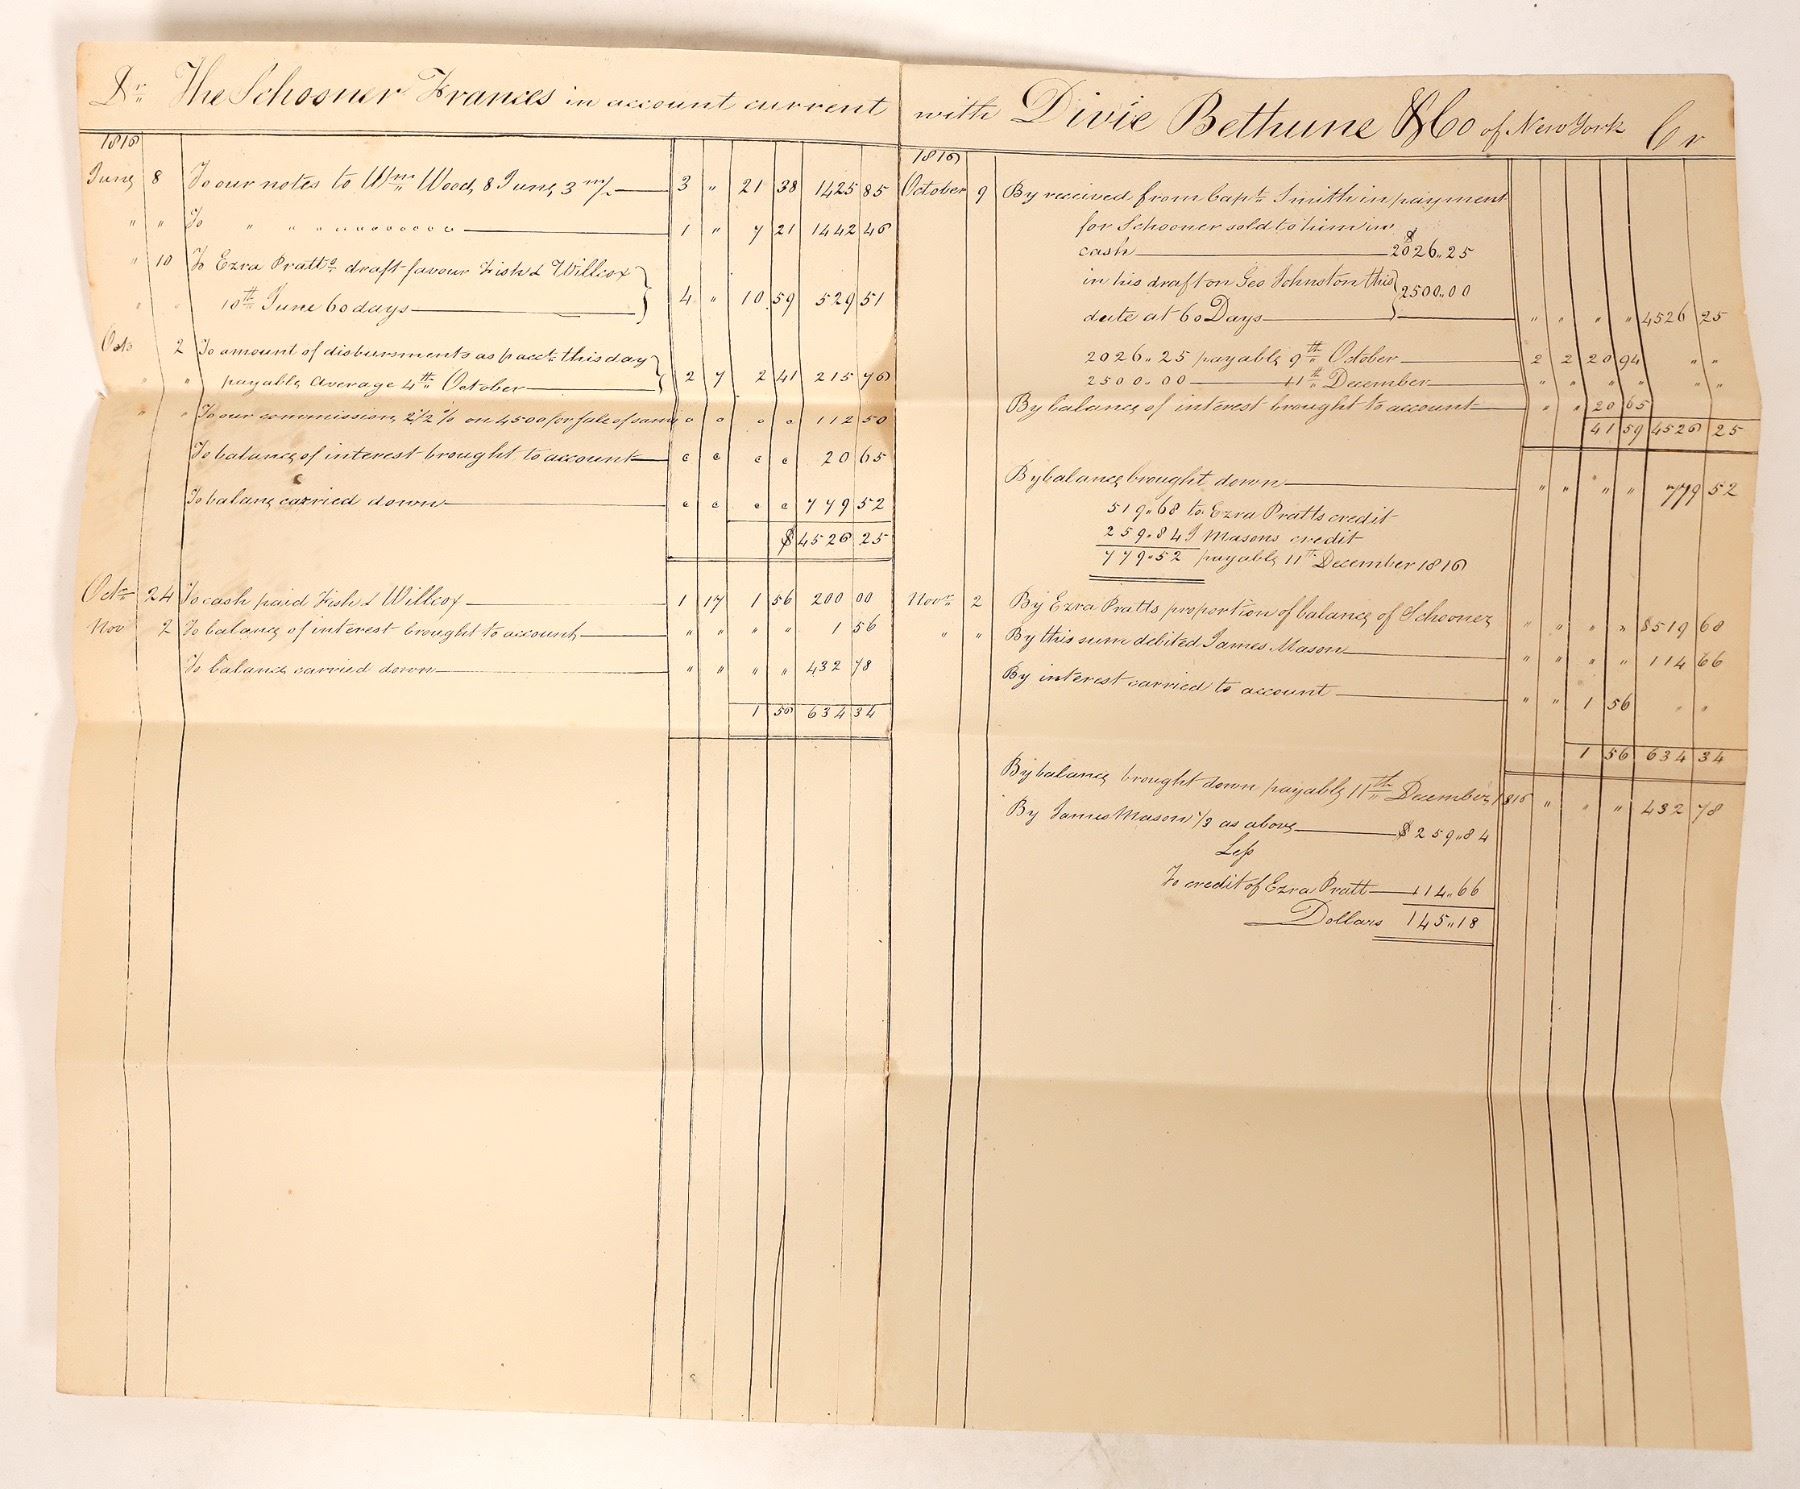 Dr. The Schooner Frances in account current with Divie Bethune & Co of New York Cr
1816
June 8 To our notes to Wm Wood, 8 June, 3 m/ 3 " 21 38 1425 85
" " To " " " " " " " " " " " 1 " 7 21 1442 46
" 10 To Ezra Pratts draft favour Fish & Willcox
" " 10th June 60 days 4 " 10 59 529 51
Octo 2 To amount of disbursments as p acct. this day
" " payable average 4th October 2 7 2 41 215 76
" " To our commission, 2 1/2 % on 4500 for sale of same " " " " 112 50
To balance of interest brought to account " " " " 20 65
To balance carried down " " " " 779 52
$4526 25
Octr 24 To cash paid Fish & Willcox 1 17 1 56 200 00
Nov 2 To balance of interest brought to account " " " " 1 56
To balance carried down " " " " 432 78
1 56 634 34
1816
October 9 By received from Capt. Smith in payment
for Schooner sold to him in
cash $2026.25
in his draft on Geo Johnston this
date at 60 Days 2500.00 " " " " 4526 25
2026.25 payable 9th October 2 2 20 94 " "
2500.00 11th December " " " " " "
By balance of interest brought to account " " 20 65
41 59 4526 25
By balance brought down " " " " 779 52
519.68 to Ezra Pratts credit
259.84 J Masons credit
779.52 payable 11th December 1816
Novr 2 By Ezra Pratts proportion of balance of Schooner " " " " $519 68
" " By this sum debited James Mason " " " " 114 66
By interest carried to account " " 1 56 " "
1 56 634 34
By balance brought down payable 11th December, 1816 " " " 432 78
By James Mason 1/3 as above $259.84
Less
To credit of Ezra Pratt 114.66
Dollars 145.18